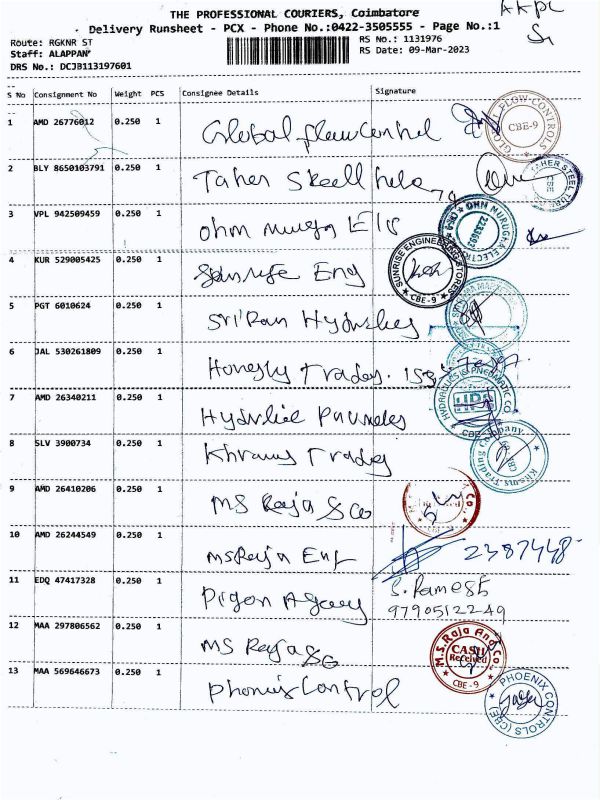 THE PROFESSIONAL COURIERS, Coimbatore
Delivery Runsheet - PCX - Phone No.:0422-3505555 - Page No.:1
Route: RGKNR ST
RS No.: 1131976
Staff: ALAPPAN
RS Date: 09-Mar-2023
DRS No.: DCJB113197601
S No Consignment No Weight PCS Consignee Details Signature
1 AMD 26776012 0.250 1 Global flow control GLOBAL FLOW-CONTROLS CBE-9
2 BLY 8650103791 0.250 1 Taher
3 VPL 942509459 0.250 1 ohm
4 KUR 529005425 0.250 1 Sunrise Eng SUNRISE ENGINEERING STORES CBE-9
5 PGT 6010624 0.250 1 Sri Ram
6 JAL 530261809 0.250 1 Traders.
7 AMD 26340211 0.250 1 HYDRAULICS & PNEUMATIC CO HPS CBE
8 SLV 3900734 0.250 1 Trading Company
9 AMD 26410206 0.250 1 MS Raja & Co
10 AMD 26244549 0.250 1 MS Raja Eng 2387448
11 EDQ 47417328 0.250 1 S. Ramesh
9790512249
12 MAA 297806562 0.250 1 MS Raja & Co M.S. Raja And Co. CASH Received CBE-9
13 MAA 569646673 0.250 1 Control PHOENIX CONTROLS (CBE)